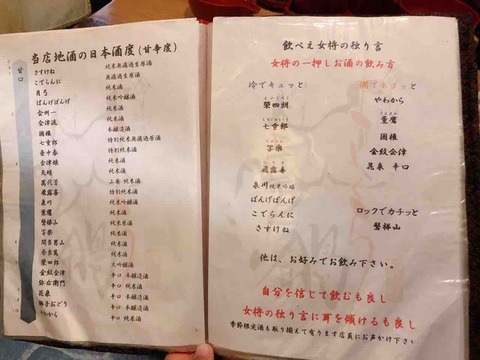 当店地酒の日本酒度(甘辛度)
甘口
さすけね 純米無濾過生原酒
こでらんに 無濾過生原酒
月弓 純米酒
ばんげぼんげ 純米吟醸酒
会州一 純米酒
会津流 純米酒
国権 本醸造酒
七重郎 特別純米無濾過原酒
壷中春 特別純米酒
会津娘 純米酒
天明 純米酒
萬代芳 山廃 純米酒
飛露喜 特別純米酒
泉川 純米吟醸酒
薫鷹 純米酒
磐梯山 純米酒
写楽 純米酒
純米酒
奈良萬 純米酒
榮四郎 大吟醸酒
金紋会津 辛口 本醸造酒
弥右衛門 辛口 純米酒
花泉 辛口 本醸造酒
獅子おどり 辛口 純米酒
やわから 辛口 純米酒
飲べえ女将の独り言
女将の一押しお酒の飲み方
冷でキュッと
榮四郎
七重郎
写楽
飛露喜
泉川 純米吟醸
ばんげぼんげ
こでらんに
さすけね
燗でキュッと
やわから
薫鷹
国権
金紋会津
花泉 辛口
ロックでカチッと
磐梯山
他は、お好みでお飲み下さい。
自分を信じて飲むも良し
女将の独り言に耳を傾けるも良し
季節限定酒も取り揃えて有ります店員にお声かけ下さい